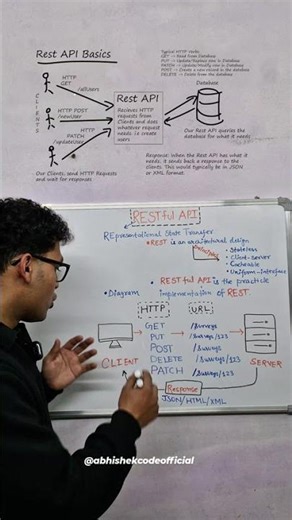 Rest API Basics
Typical HTTP Verbs:
GET -> Read from Database
PUT -> Update/Replace row in Database
PATCH -> Update/Modify row in Database
POST -> Create a new record in the database
DELETE -> Delete from the database
CLIENTS
HTTP
GET
/allUsers
HTTP POST
/newUser
HTTP
PATCH
/updateUser
Rest API
Recieves HTTP
requests from
Clients and does
whatever request
needs. ie create
users
Database
Our Rest API queries the
database for what it needs
Our Clients, send HTTP Requests
and wait for responses
Response: When the Rest API has what it
needs, it sends back a response to the
clients. This would typically be in JSON
or XML format.
RESTful API
REpresentational State Transfer
• REST is an architectural design
• Stateless
• Client-server
• Cacheable
• Uniform-interface
• RESTful API is the practicle
implementation of REST.
• Diagram
HTTP
URL
GET
/surveys
PUT
/surveys/123
POST
/surveys
DELETE
/surveys/123
PATCH
/surveys/123
CLIENT
SERVER
Response
JSON/HTML/XML
@abhishekcodeofficial